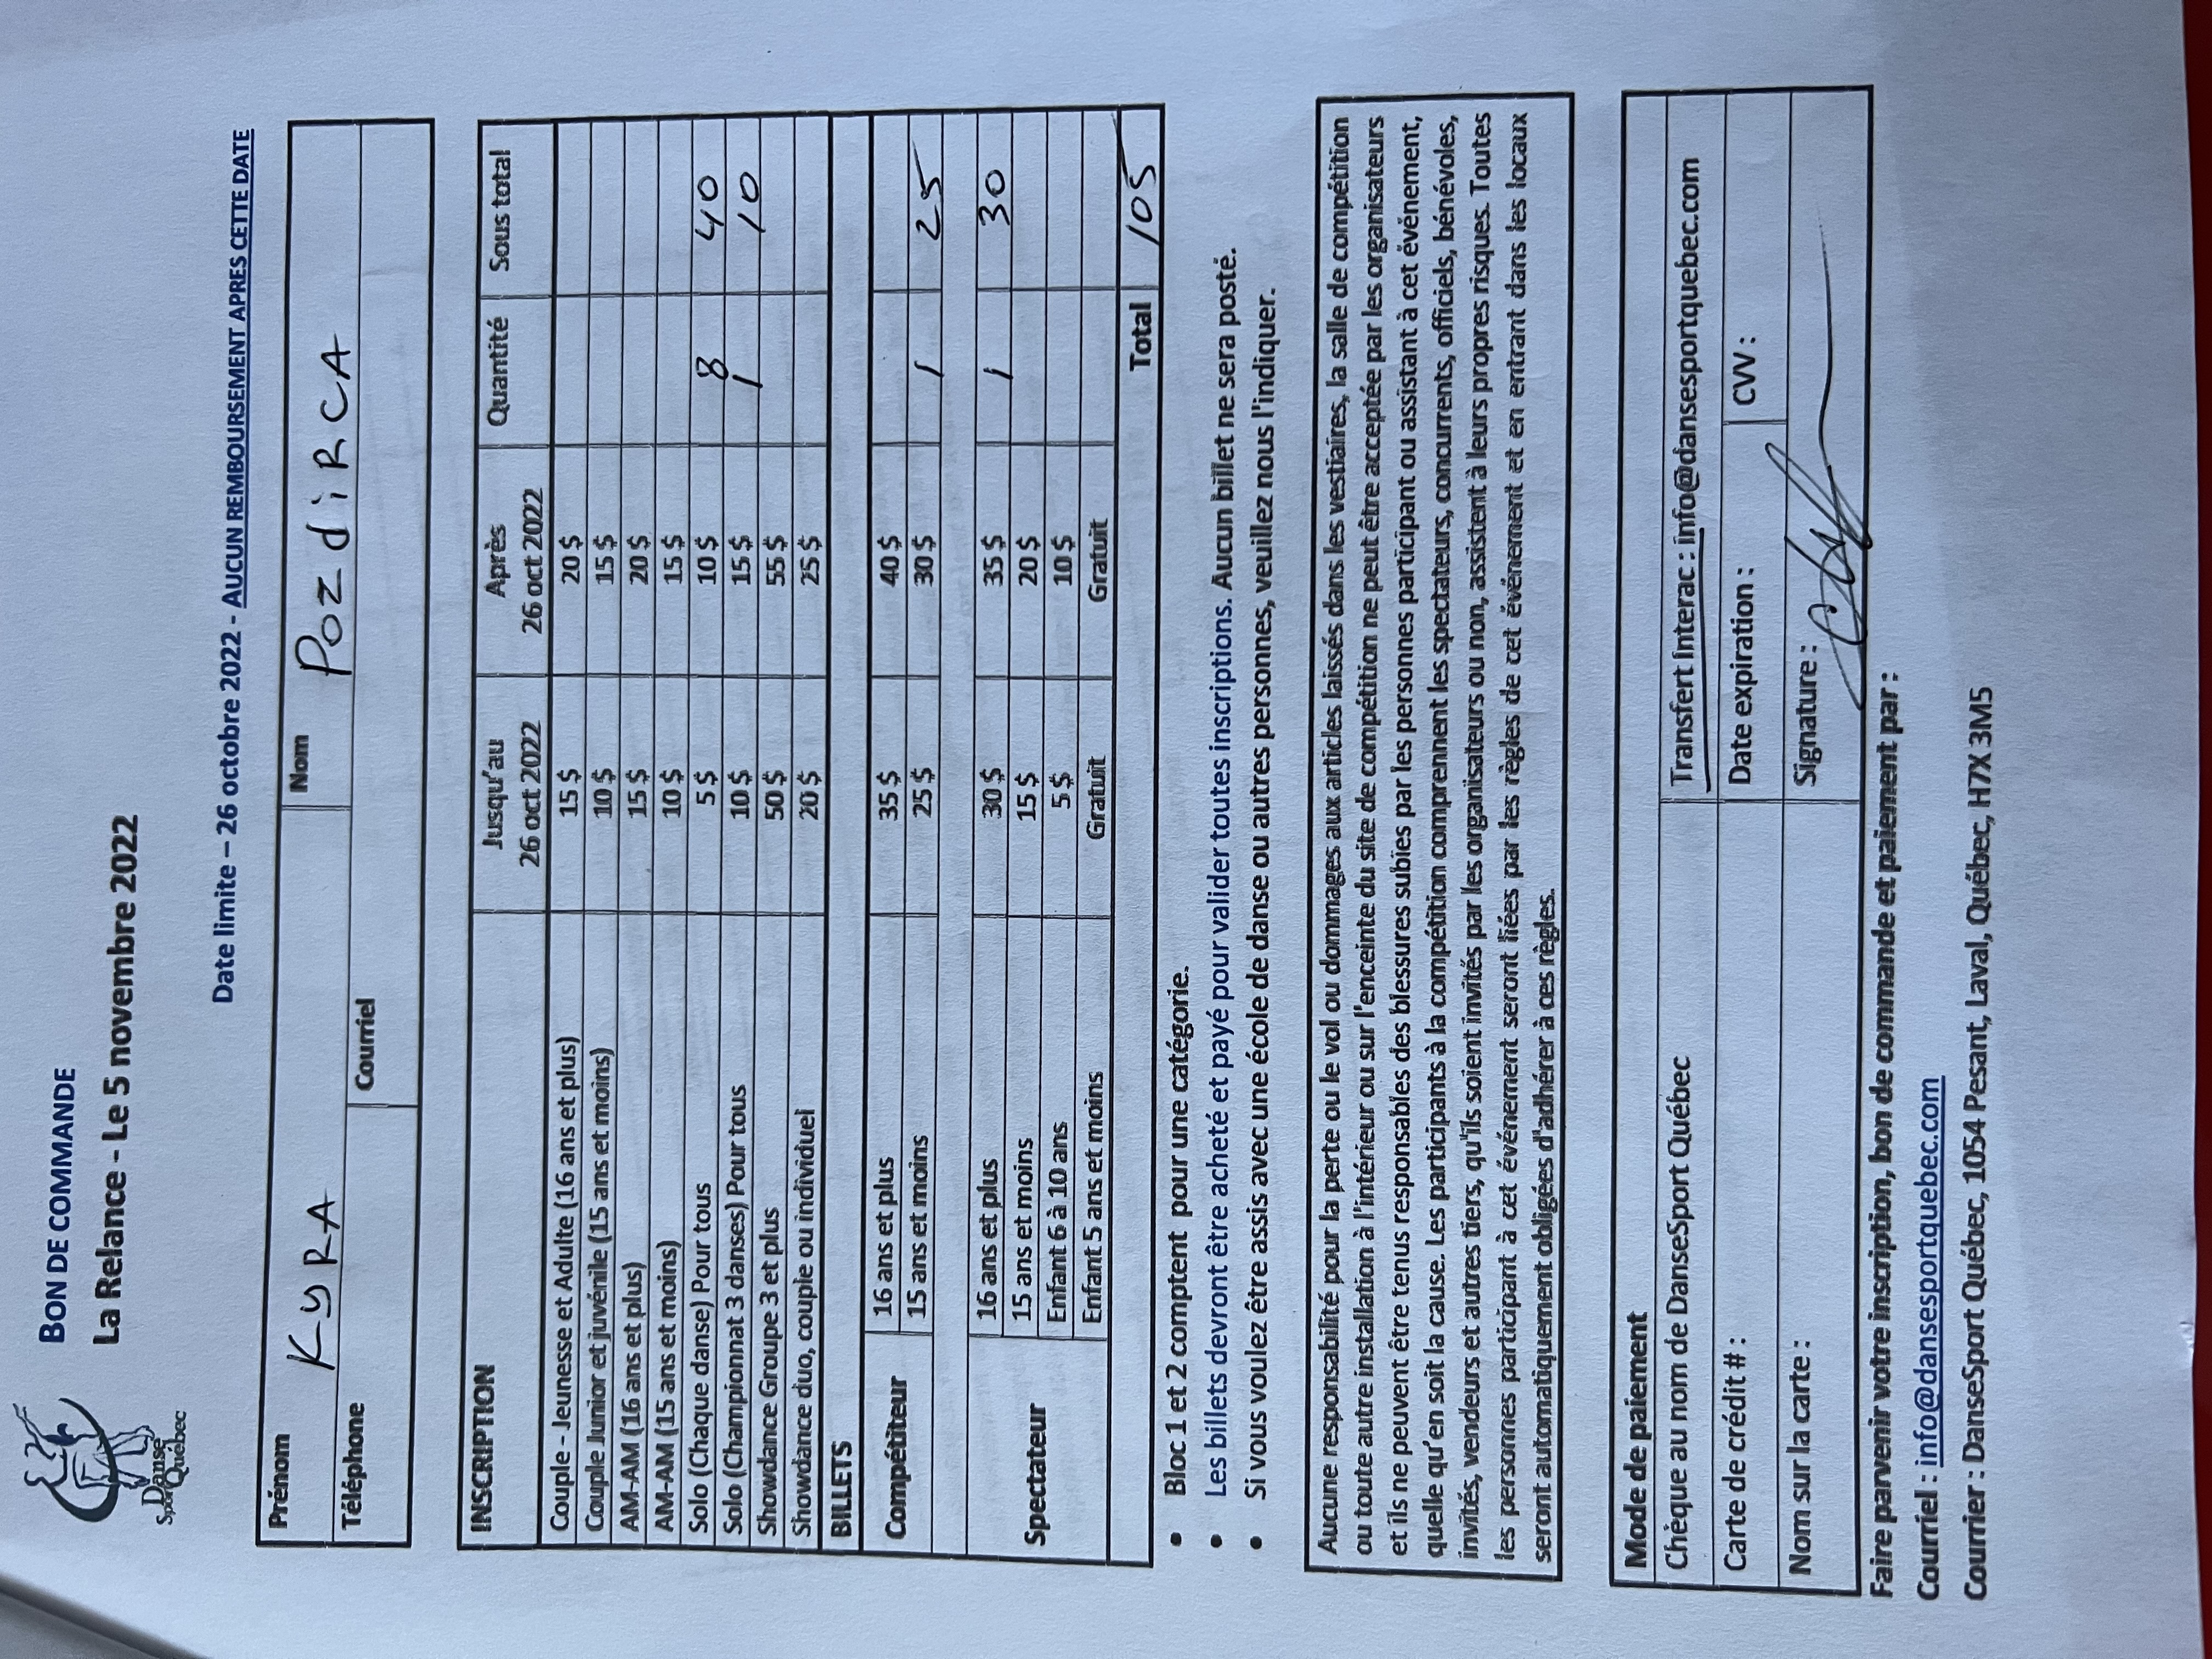 Danse
Sport Québec
BON DE COMMANDE
La Relance - Le 5 novembre 2022
Date limite – 26 octobre 2022 - AUCUN REMBOURSEMENT APRES CETTE DATE
Prénom KyRA Nom POZdiRCA
Téléphone Courriel
INSCRIPTION Jusqu'au 26 oct 2022 Après 26 oct 2022 Quantité Sous total
Couple - Jeunesse et Adulte (16 ans et plus) 15 $ 20 $
Couple Junior et juvénile (15 ans et moins) 10 $ 15 $
AM-AM (16 ans et plus) 15 $ 20 $
AM-AM (15 ans et moins) 10 $ 15 $
Solo (Chaque danse) Pour tous 5 $ 10 $ 8 40
Solo (Championnat 3 danses) Pour tous 10 $ 15 $ 1 10
Showdance Groupe 3 et plus 50 $ 55 $
Showdance duo, couple ou individuel 20 $ 25 $
BILLETS
Compétiteur 16 ans et plus 35 $ 40 $
15 ans et moins 25 $ 30 $ 1 25
Spectateur 16 ans et plus 30 $ 35 $ 1 30
15 ans et moins 15 $ 20 $
Enfant 6 à 10 ans 5 $ 10 $
Enfant 5 ans et moins Gratuit Gratuit
Total 105
• Bloc 1 et 2 comptent pour une catégorie.
• Les billets devront être acheté et payé pour valider toutes inscriptions. Aucun billet ne sera posté.
• Si vous voulez être assis avec une école de danse ou autres personnes, veuillez nous l'indiquer.
Aucune responsabilité pour la perte ou le vol ou dommages aux articles laissés dans les vestiaires, la salle de compétition
ou toute autre installation à l'intérieur ou sur l'enceinte du site de compétition ne peut être acceptée par les organisateurs
et ils ne peuvent être tenus responsables des blessures subies par les personnes participant ou assistant à cet événement,
quelle qu'en soit la cause. Les participants à la compétition comprennent les spectateurs, concurrents, officiels, bénévoles,
invités, vendeurs et autres tiers, qu'ils soient invités par les organisateurs ou non, assistent à leurs propres risques. Toutes
les personnes participant à cet événement seront liées par les règles de cet événement et en entrant dans les locaux
seront automatiquement obligées d'adhérer à ces règles.
Mode de paiement
Chèque au nom de DanseSport Québec Transfert Interac : info@dansesportquebec.com
Carte de crédit # : Date expiration : CVV :
Nom sur la carte : Signature :
Faire parvenir votre inscription, bon de commande et paiement par :
Courriel : info@dansesportquebec.com
Courrier : DanseSport Québec, 1054 Pesant, Laval, Québec, H7X 3M5